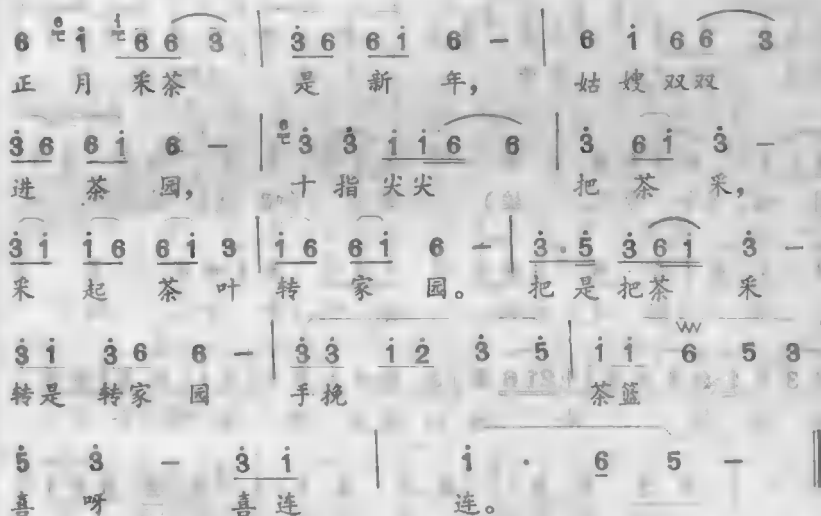 6 6 i i 6 6 3 | 3 6 6 i 6 – | 6 i 6 6 3
正 月 采茶 是 新 年， 姑 嫂 双双
3 6 6 i 6 – | 6 3 3 i i 6 6 | 3 6 i 3 –
进 茶 园， 十 指 尖尖 把 茶 采，
3 i i 6 6 i 3 | i 6 6 i 6 – | 3 · 5 3 6 i 3 –
采 起 茶 叶 转 家 园。 把 是 把茶 采
3 i 3 6 6 – | 3 3 i 2 3 5 | i i 6 5 3
转是 转家 园 手挽 茶篮
5 3 – 3 i | i · 6 5 –
喜 呀 喜 连 连。